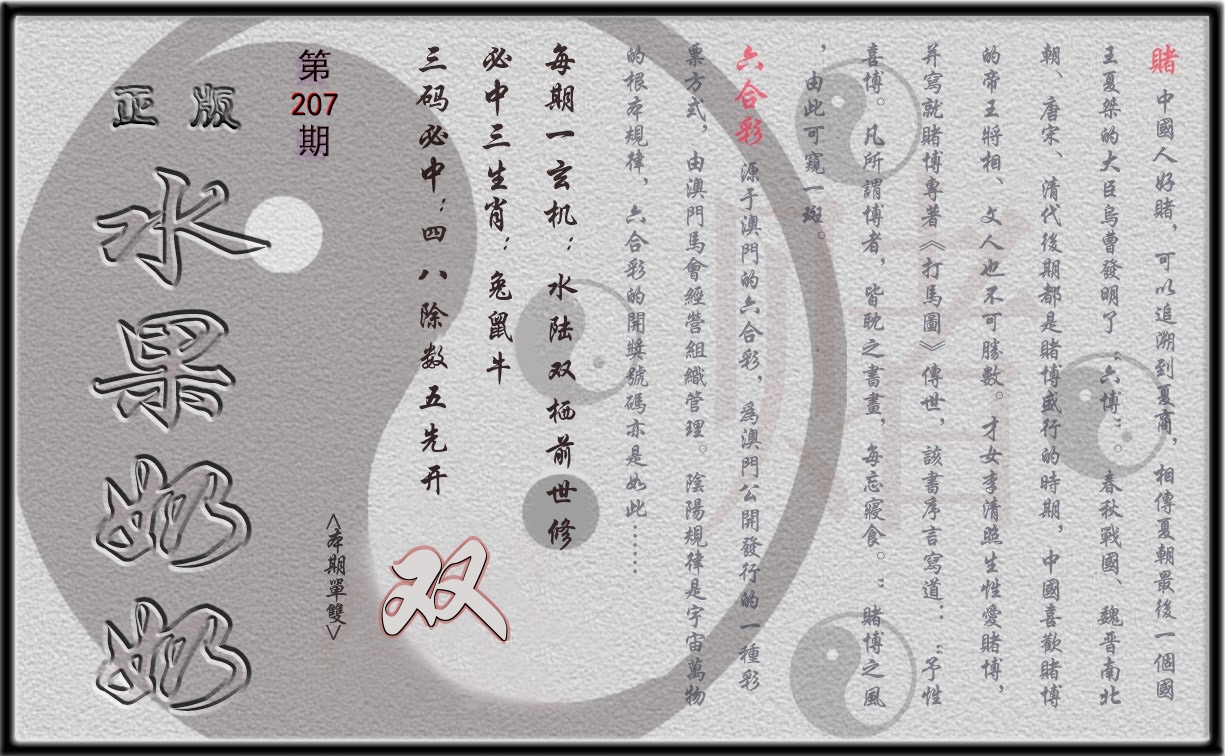 賭 中國人好賭，可以追溯到夏商，相傳夏朝最後一個國
王夏桀的大臣烏曹發明了“六博”。春秋戰國、魏晋南北
朝、唐宋、清代後期都是賭博盛行的時期，中國喜歡賭博
的帝王將相、文人也不可勝數。才女李清照生性愛賭博，
并寫就賭博專著《打馬圖》傳世，該書序言寫道：“予性
喜博。凡所謂博者，皆耽之書畫，每忘寢食。：賭博之風
，由此可窺一斑。
六合彩 源于澳門的六合彩，爲澳門公開發行的一種彩
票方式，由澳門馬會經營組織管理。陰陽規律是宇宙萬物
的根本規律，六合彩的開獎號碼亦是如此……
每期一玄机：水陆双栖前世修
必中三生肖：兔鼠牛
三码必中：四八除数五先开
双
<本期單雙>
第
207
期
正版
水果奶奶
賭